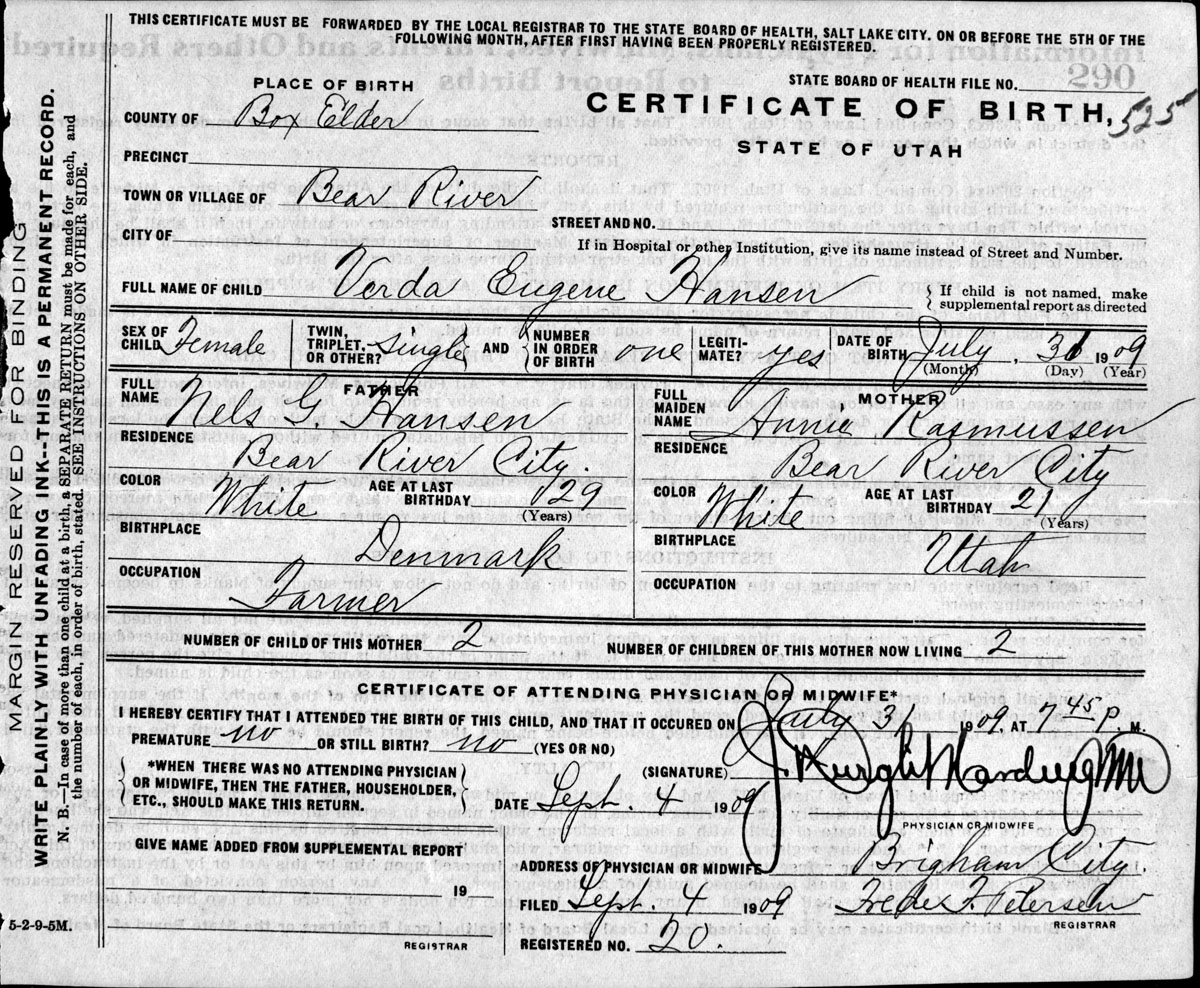 THIS CERTIFICATE MUST BE FORWARDED BY THE LOCAL REGISTRAR TO THE STATE BOARD OF HEALTH, SALT LAKE CITY. ON OR BEFORE THE 5TH OF THE
FOLLOWING MONTH, AFTER FIRST HAVING BEEN PROPERLY REGISTERED.
PLACE OF BIRTH
STATE BOARD OF HEALTH FILE NO. 290
COUNTY OF Box Elder
CERTIFICATE OF BIRTH, 525
PRECINCT
STATE OF UTAH
TOWN OR VILLAGE OF Bear River
STREET AND NO.
CITY OF
If in Hospital or other Institution, give its name instead of Street and Number.
FULL NAME OF CHILD Verda Eugene Hansen { If child is not named, make
supplemental report as directed
SEX OF CHILD Female TWIN, TRIPLET, OR OTHER? single AND { NUMBER IN ORDER OF BIRTH one LEGITIMATE? yes DATE OF BIRTH July, 31 1909
(Month) (Day) (Year)
FATHER
FULL NAME Nels G. Hansen
RESIDENCE
Bear River City.
COLOR White AGE AT LAST BIRTHDAY 29
(Years)
BIRTHPLACE
Denmark
OCCUPATION
Farmer
MOTHER
FULL MAIDEN NAME Annie Rasmussen
RESIDENCE
Bear River City
COLOR White AGE AT LAST BIRTHDAY 21
(Years)
BIRTHPLACE
Utah
OCCUPATION
NUMBER OF CHILD OF THIS MOTHER 2 NUMBER OF CHILDREN OF THIS MOTHER NOW LIVING 2
CERTIFICATE OF ATTENDING PHYSICIAN OR MIDWIFE*
I HEREBY CERTIFY THAT I ATTENDED THE BIRTH OF THIS CHILD, AND THAT IT OCCURED ON July 31 1909 AT 7 45 P. M.
PREMATURE no OR STILL BIRTH? no (YES OR NO)
{ *WHEN THERE WAS NO ATTENDING PHYSICIAN
OR MIDWIFE, THEN THE FATHER, HOUSEHOLDER,
ETC., SHOULD MAKE THIS RETURN. }
(SIGNATURE) J. Harding
DATE Sept. 4 1909
PHYSICIAN OR MIDWIFE
GIVE NAME ADDED FROM SUPPLEMENTAL REPORT
ADDRESS OF PHYSICIAN OR MIDWIFE Brigham City.
19
FILED Sept. 4 1909 Petersen
REGISTRAR
REGISTERED NO. 20.
5-2-9-5M.
REGISTRAR
MARGIN RESERVED FOR BINDING
WRITE PLAINLY WITH UNFADING INK--THIS IS A PERMANENT RECORD.
N. B.—In case of more than one child at a birth, a SEPARATE RETURN must be made for each, and
the number of each, in order of birth, stated. SEE INSTRUCTIONS ON OTHER SIDE.